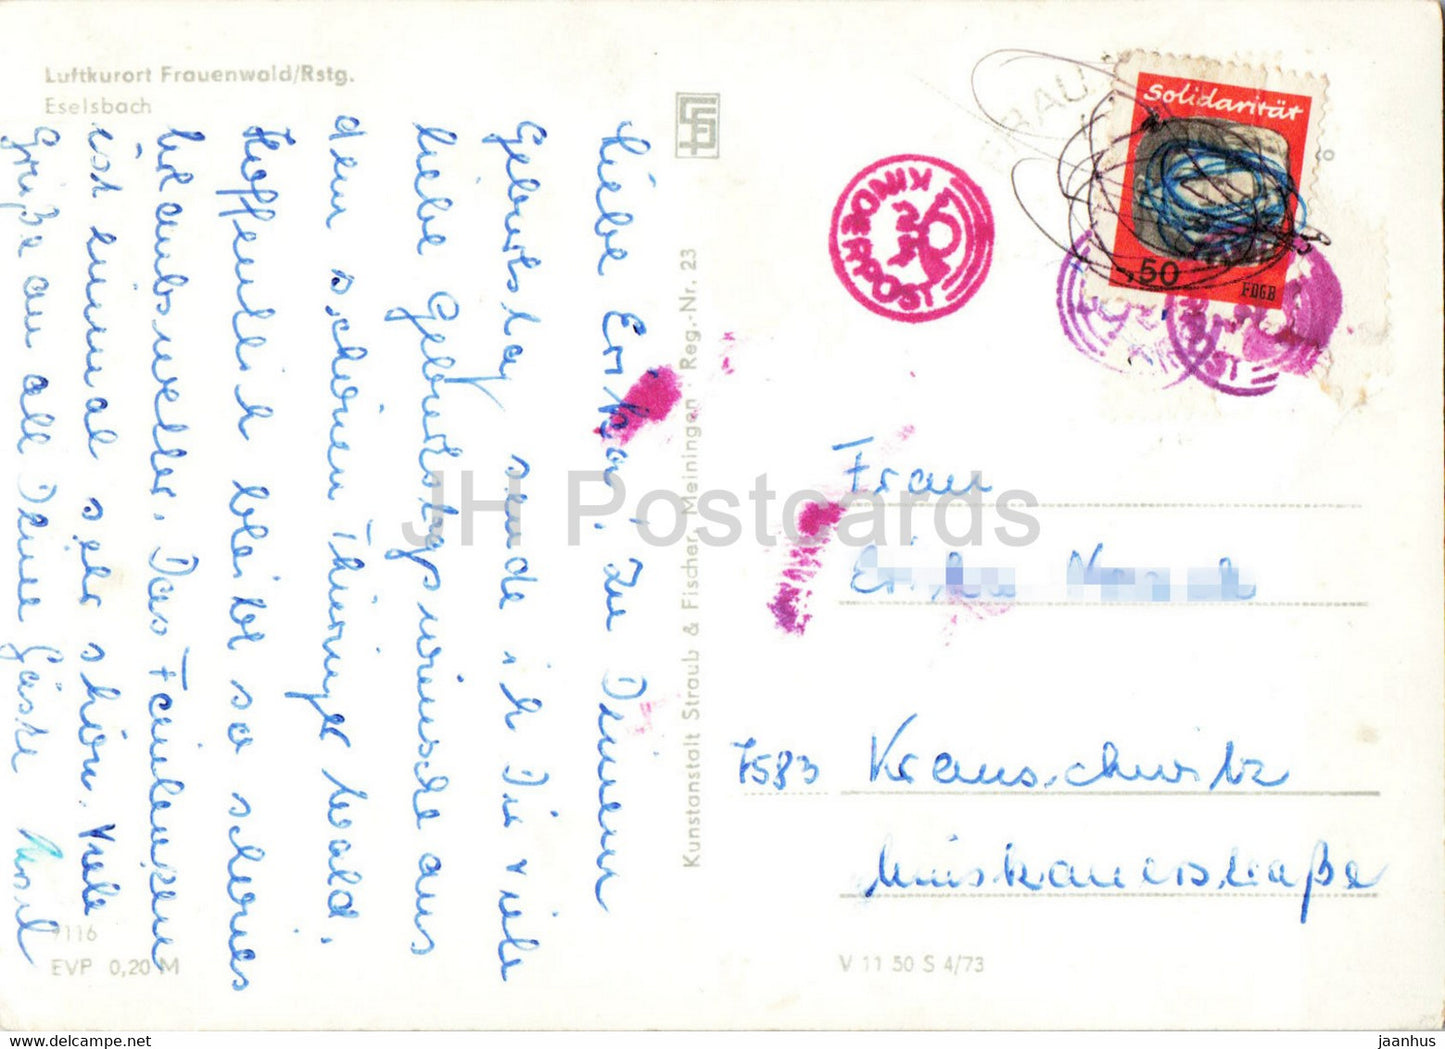 Luftkurort Frauenwald/Rstg.
Eselsbach
Liebe Erika! Zu Deinem
Geburtstag sende ich Dir viele
liebe Geburtstagswünsche aus
dem schönen Thüringer Wald.
Hoffentlich bleibt so schönes
Urlaubswetter. Das
ist einmal sehr schön. Viele
Grüße an all Deine Gäste
9116
EVP 0,20 M
Kunstanstalt Straub & Fischer, Meiningen · Reg.-Nr. 23
FRAU
Solidarität
50
FDGB
KINDERPOST
Frau
7583 Krauschwitz
Muskauerstraße
V 11 50 S 4/73
JH Postcards
jaanhus